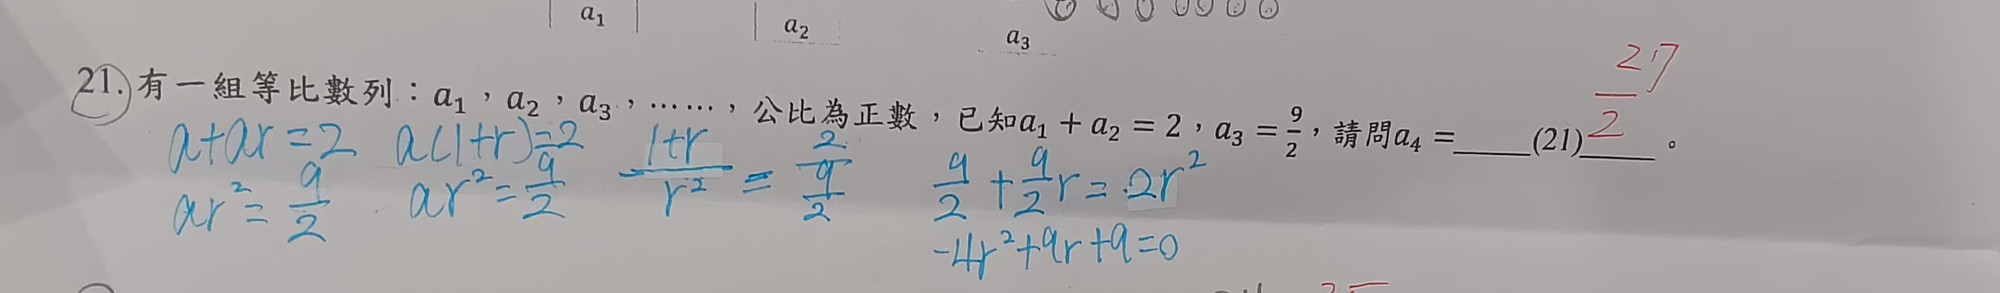 a₁ a₂ a₃
21. 有一組等比數列：a₁，a₂，a₃，……，公比為正數，已知a₁ + a₂ = 2，a₃ = 9/2，請問a₄ =____(21)____。
27/2
a+ar=2 a(1+r)=2 (1+r)/r² = 2/(9/2) 9/2 + 9/2 r = 2r²
ar² = 9/2 ar² = 9/2
-4r²+9r+9=0